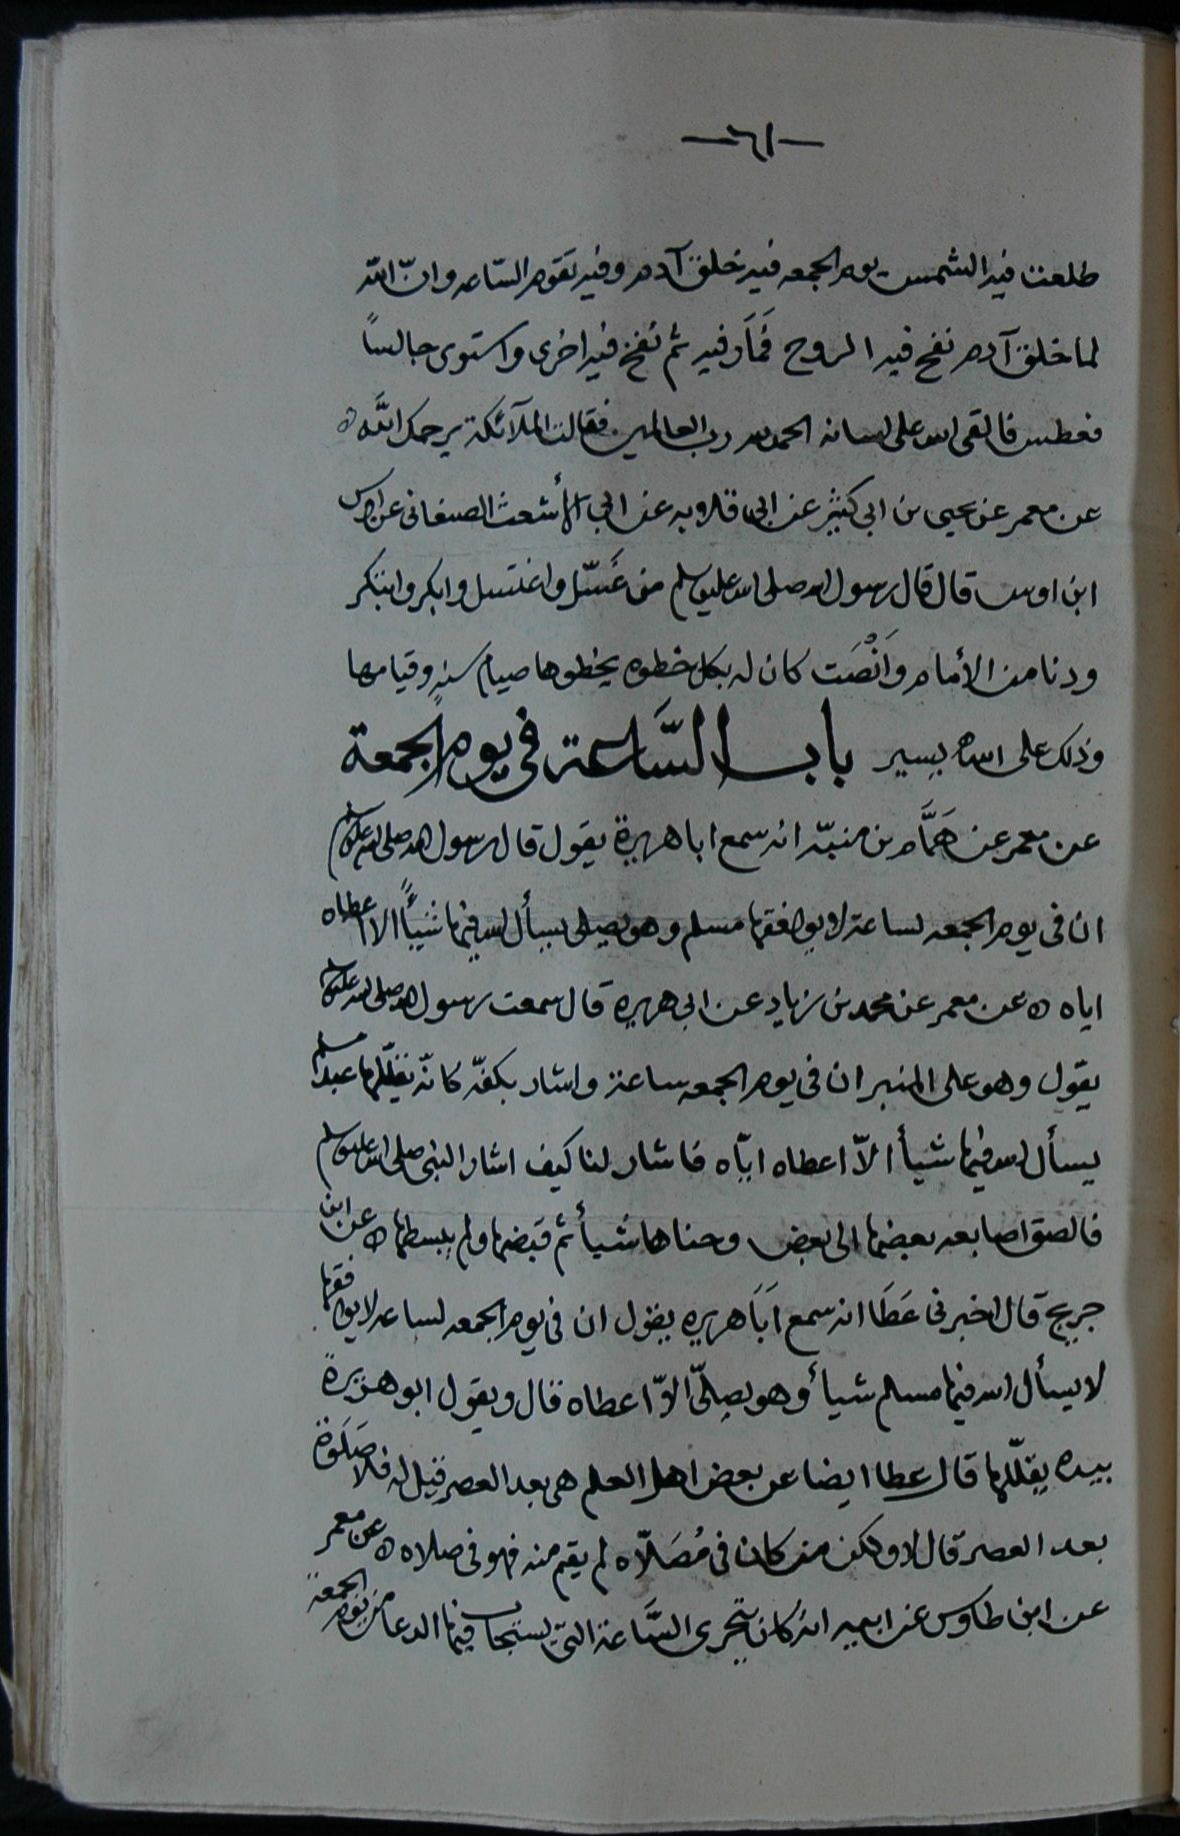 —٦١—
طلعت فيه الشمس يوم الجمعه فيه خلق آدم وفيه تقوم السّاعه وانّ الله
لما خلق آدم نفخ فيه الروح فمار فيه ثم نفخ فيه اخرى واستوى جالساً
فعطس فالقى الله على لسانه الحمد لله رب العالمين فقالت الملآئكة يرحمك اللّه ه
عن معمر عن يحيى بن ابي كثير عن ابى قلابه عن ابي الأشعث الصنعانى عن اوس
ابن اوس قال قال رسول الله صلى الله عليه وسلم من غَسّل واغتسل وابكر وابتكر
ودنا من الأمام وَانْصَت كان له بكل خطوه يخطوها صيام سنه وقيامها
وذلك على الله يسير باب السَّاعة فى يوم الجمعة
عن معمر عن هَمَّام بن منبّه انه سمع ابا هريرة يقول قال رسول الله صلى الله عليه وسلم
ان فى يوم الجمعه لساعة لا يوافقها مسلم وهو يصلى يسأل الله فيها شيأً الا اعطاه
اياه ه عن معمر عن محمد بن زياد عن ابى هريره قال سمعت رسول الله صلى الله عليه وسلم
يقول وهو على المنبر ان فى يوم الجمعه ساعة واشار بكفّه كانّه يقلّلها عبد مسلم
يسأل الله فيها شيأ الاّ اعطاه ايّاه فاشار لنا كيف اشار النبى صلى الله عليه وسلم
فالصق اصابعه بعضها الى بعض وحناها شيأً ثم قبضها ولم يبسطها ه عن ابن
جريج قال اخبرنى عَطَا انه سمع اَبَا هريره يقول ان فى يوم الجمعه لساعه لا يوافقها
لا يسأل الله فيها مسلم شيأً وهو يصلّى الاّ اعطاه قال ويقول ابو هريرة
بيده يقلّلها قال عطا ايضا عن بعض اهل العلم هى بعد العصر فقيل له فلا صَلَوة
بعد العصر قال لا ولكن من كان فى مُصَلّاه لم يقم منه فهو فى صلاه ه عن معمر
عن ابن طاوس عن ابيه انه كان يتحرى السَّاعة التى يستجاب فيها الدعا من يوم الجمعة